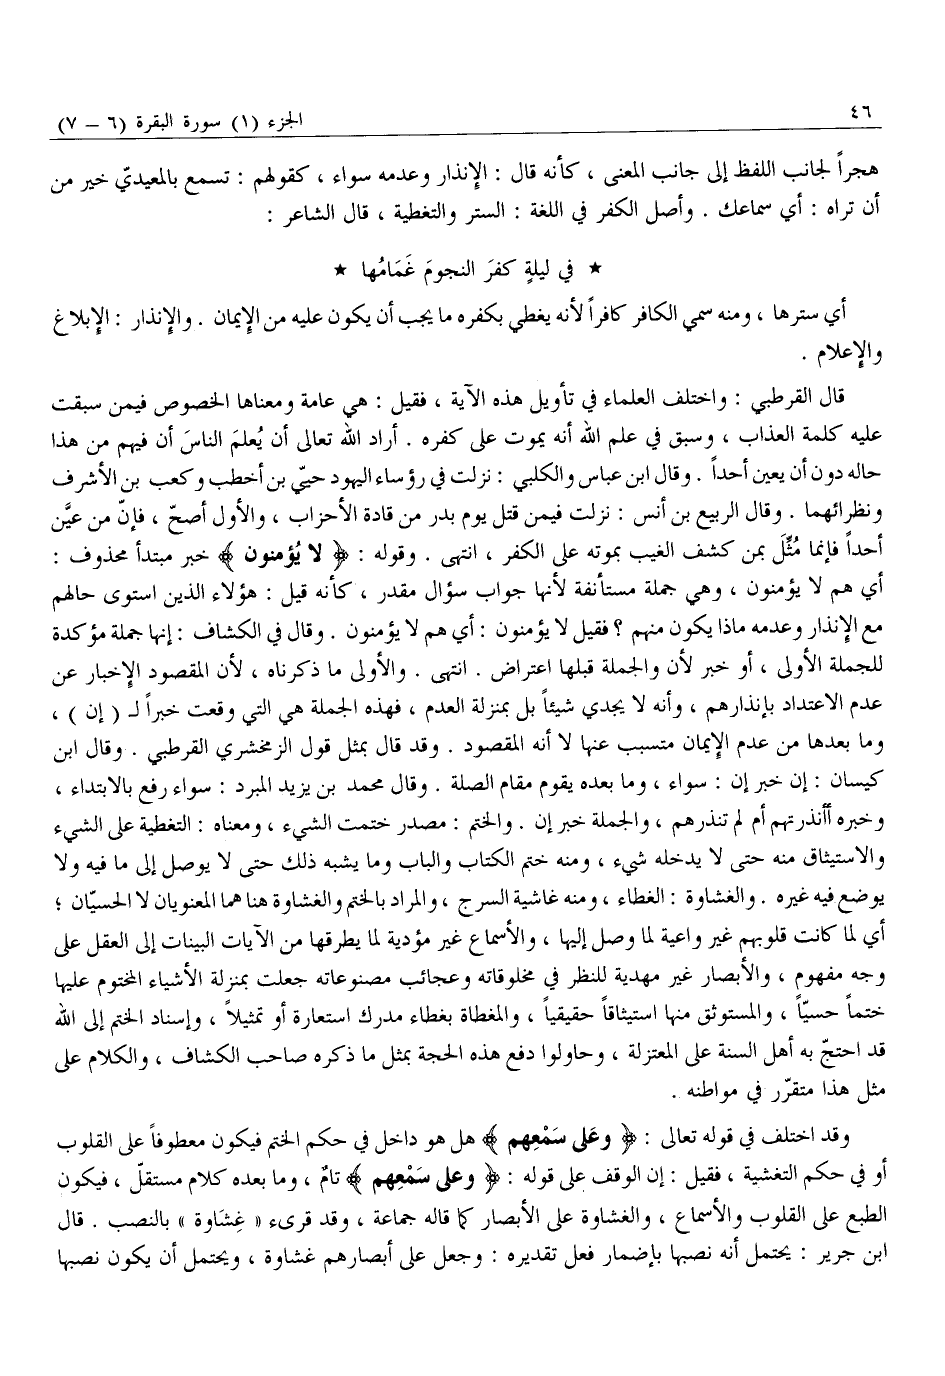 ٤٦
الجزء (١) سورة البقرة (٦ – ٧)
هجراً لجانب اللفظ إلى جانب المعنى ، كأنه قال : الإنذار وعدمه سواء ، كقولهم : تسمع بالمعيديّ خير من
أن تراه : أي سماعك . وأصل الكفر في اللغة : الستر والتغطية ، قال الشاعر :
★ في ليلةٍ كفرَ النجومَ غَمَامُها ★
أي سترها ، ومنه سمي الكافر كافراً لأنه يغطي بكفره ما يجب أن يكون عليه من الإيمان . والإنذار : الإبلاغ
والإعلام .
قال القرطبي : واختلف العلماء في تأويل هذه الآية ، فقيل : هي عامة ومعناها الخصوص فيمن سبقت
عليه كلمة العذاب ، وسبق في علم الله أنه يموت على كفره . أراد الله تعالى أن يُعلمَ الناسَ أن فيهم من هذا
حاله دون أن يعين أحداً . وقال ابن عباس والكلبي : نزلت في رؤساء اليهود حييّ بن أخطب وكعب بن الأشرف
ونظرائهما . وقال الربيع بن أنس : نزلت فيمن قتل يوم بدر من قادة الأحزاب ، والأول أصحّ ، فإنّ من عيَّن
أحداً فإنما مُثِّلَ بمن كشف الغيب بموته على الكفر ، انتهى . وقوله : ﴿ لا يُؤمنون ﴾ خبر مبتدأ محذوف :
أي هم لا يؤمنون ، وهي جملة مستأنفة لأنها جواب سؤال مقدر ، كأنه قيل : هؤلاء الذين استوى حالهم
مع الإنذار وعدمه ماذا يكون منهم ؟ فقيل لا يؤمنون : أي هم لا يؤمنون . وقال في الكشاف : إنها جملة مؤكدة
للجملة الأولى ، أو خبر لأن والجملة قبلها اعتراض . انتهى . والأولى ما ذكرناه ، لأن المقصود الإخبار عن
عدم الاعتداد بإنذارهم ، وأنه لا يجدي شيئاً بل بمنزلة العدم ، فهذه الجملة هي التي وقعت خبراً لـ ( إن ) ،
وما بعدها من عدم الإيمان متسبب عنها لا أنه المقصود . وقد قال بمثل قول الزمخشري القرطبي . وقال ابن
كيسان : إن خبر إن : سواء ، وما بعده يقوم مقام الصلة . وقال محمد بن يزيد المبرد : سواء رفع بالابتداء ،
وخبره أأنذرتهم أم لم تنذرهم ، والجملة خبر إن . والختم : مصدر ختمت الشيء ، ومعناه : التغطية على الشيء
والاستيثاق منه حتى لا يدخله شيء ، ومنه ختم الكتاب والباب وما يشبه ذلك حتى لا يوصل إلى ما فيه ولا
يوضع فيه غيره . والغشاوة : الغطاء ، ومنه غاشية السرج ، والمراد بالختم والغشاوة هنا هما المعنويان لا الحسيّان ؛
أي لما كانت قلوبهم غير واعية لما وصل إليها ، والأسماع غير مؤدية لما يطرقها من الآيات البينات إلى العقل على
وجه مفهوم ، والأبصار غير مهدية للنظر في مخلوقاته وعجائب مصنوعاته جعلت بمنزلة الأشياء المختوم عليها
ختماً حسيّاً ، والمستوثق منها استيثاقاً حقيقياً ، والمغطاة بغطاء مدرك استعارة أو تمثيلاً ، وإسناد الختم إلى الله
قد احتجّ به أهل السنة على المعتزلة ، وحاولوا دفع هذه الحجة بمثل ما ذكره صاحب الكشاف ، والكلام على
مثل هذا متقرّر في مواطنه .
وقد اختلف في قوله تعالى : ﴿ وعَلى سَمْعِهم ﴾ هل هو داخل في حكم الختم فيكون معطوفاً على القلوب
أو في حكم التغشية ، فقيل : إن الوقف على قوله : ﴿ وعلى سَمْعِهم ﴾ تامٌ ، وما بعده كلام مستقلّ ، فيكون
الطبع على القلوب والأسماع ، والغشاوة على الأبصار كما قاله جماعة ، وقد قرىء « غِشَاوة » بالنصب . قال
ابن جرير : يحتمل أنه نصبها بإضمار فعل تقديره : وجعل على أبصارهم غشاوة ، ويحتمل أن يكون نصبها